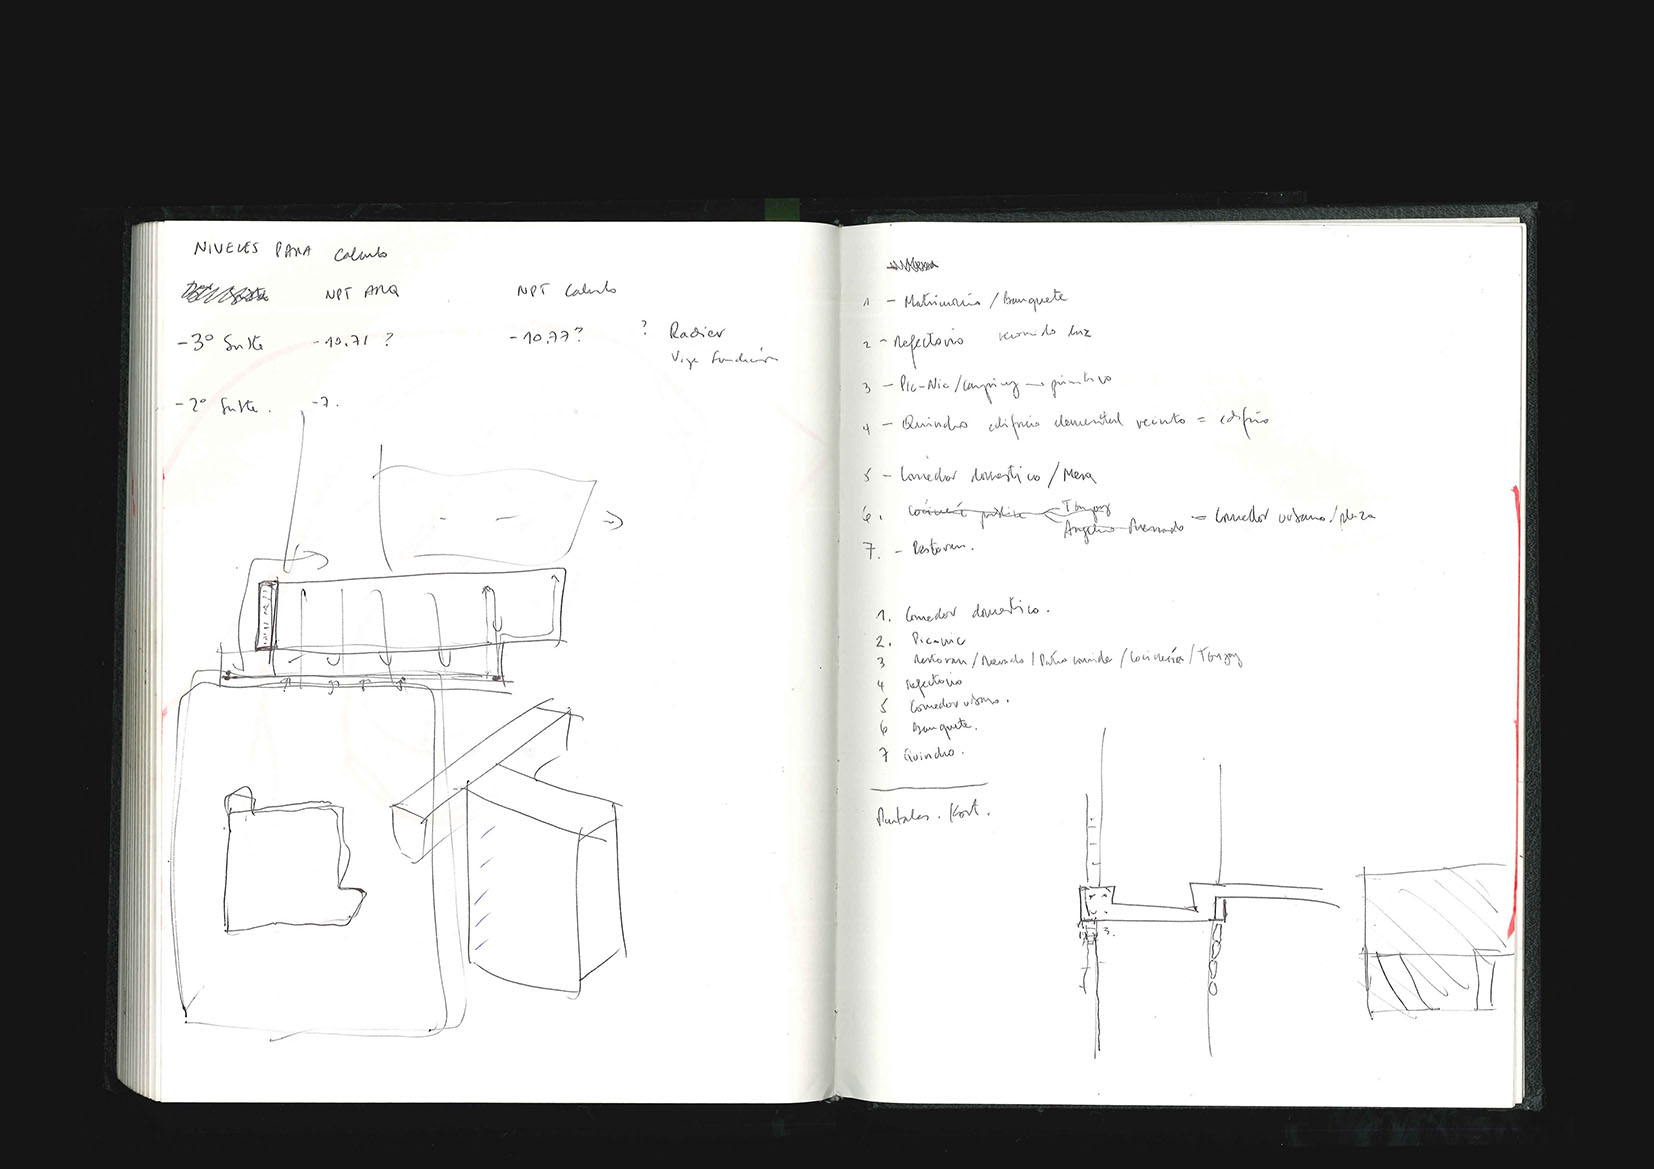 NIVELES PARA Calculo
NPT ARQ NPT Calculo
-3º Subte -10.71 ? -10.77? ? Radier
Viga Fundación
-2º Subte. -7.
1 - Matrimonio / Banquete
2 - Refectorio luz
3 - Pic-Nic / Camping → primitivo
4 - Quincho edificio elemental recinto = edificio
5 - Comedor domestico / Mesa
6. Cocinería = Comedor urbano / plaza
7. - Restoran.
1. Comedor domestico.
2. Picnic
3 Restoran / Mercado / Patio comida / Cocinería /
4 Refectorio
5 Comedor urbano.
6 Banquete.
7 Quincho.
3.